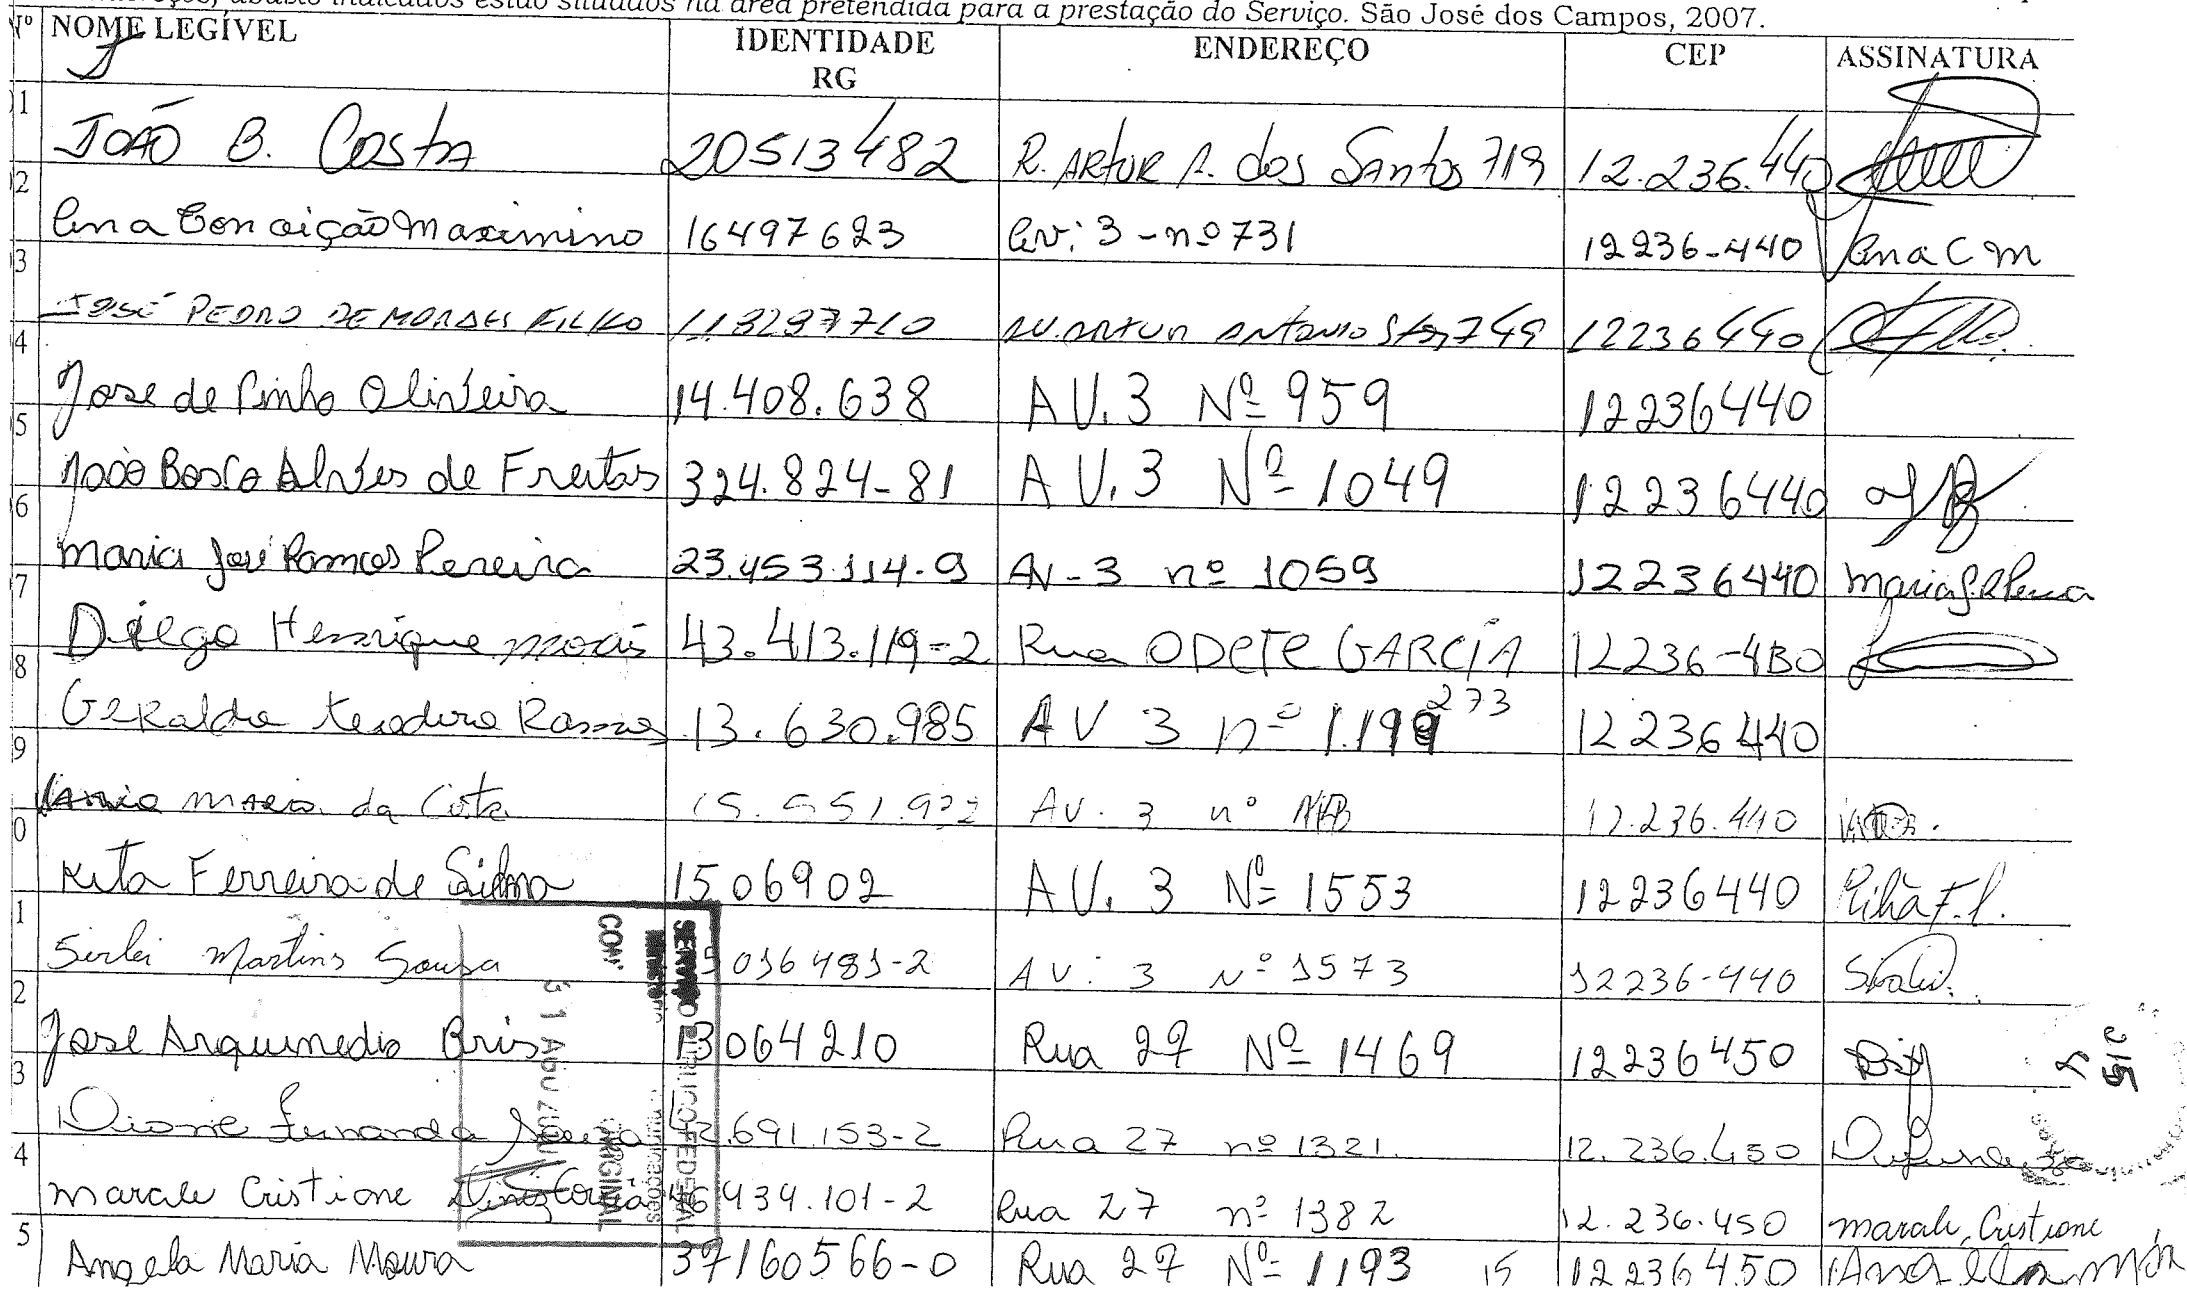 abaixo indicados estão situados na área pretendida para a prestação do Serviço. São José dos Campos, 2007.
Nº NOME LEGÍVEL IDENTIDADE RG ENDEREÇO CEP ASSINATURA
JOÃO B. COSTA 20513482 R. ARTUR A. dos Santos 719 12.236.440
Ana Conceição Maximino 16497623 Av: 3 - nº 731 12236-440 Ana C M
JOSÉ PEDRO DE MORAES FILHO 113297710 AV. ARTUR ANTONIO 749 12236440
Jose de Pinho Oliveira 14.408.638 AV. 3 Nº 959 12236440
João Bosco Alves de Freitas 324.824-81 AV. 3 Nº 1049 12236440
Maria José Ramos Pereira 23.453.114-9 AV-3 nº 1059 12236440
Diego Henrique 43.413.119-2 Rua ODETE GARCIA 273 12236-430
Geralda Teodoro Ramos 13.630.985 AV 3 nº 1.199 12236440
Maria da Costa AV. 3 nº 12.236.440
Rita Ferreira de Silma 1506902 AV. 3 Nº 1553 12236440
Sirlei Martins Sousa 5036483-2 AV: 3 Nº 1573 12236-440
Jose Arquimedio Bris 13064210 Rua 27 Nº 1469 12236450
Dione Fernanda Souza 42.691.153-2 Rua 27 nº 1321 12.236.450
Marcele Cristione 46434.101-2 Rua 27 nº 1382 12.236.450 Cristione
Angela Maria Moura 37160566-0 Rua 27 Nº 1193 15 12236450
SERVIÇO PÚBLICO FEDERAL
ORIGINAL
215